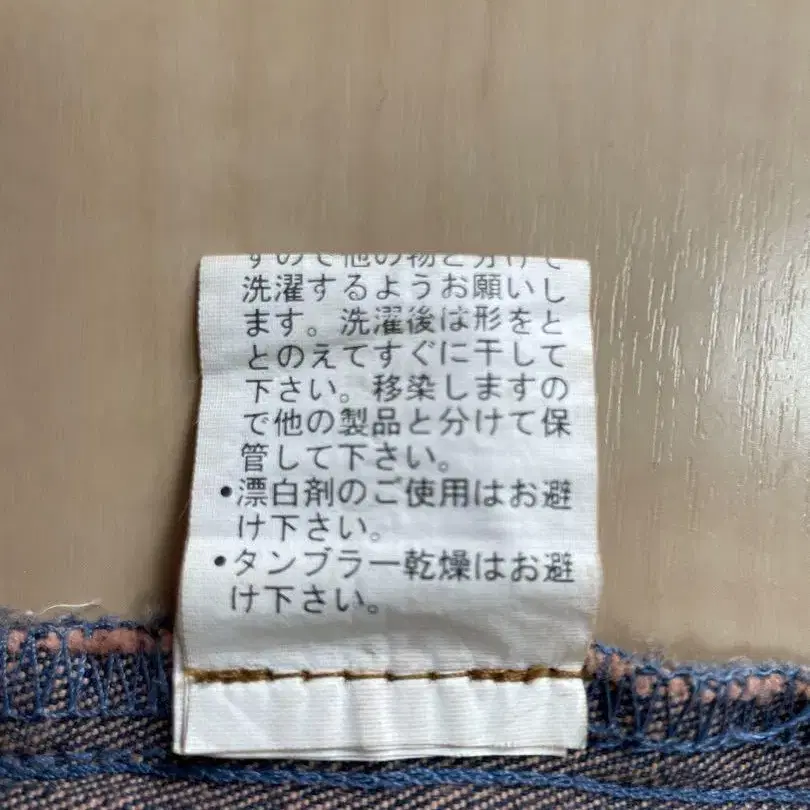 すので他の物と分けて
洗濯するようお願いし
ます。洗濯後は形をと
とのえてすぐに干して
下さい。移染しますの
で他の製品と分けて保
管して下さい。
•漂白剤のご使用はお避
け下さい。
•タンブラー乾燥はお避
け下さい。